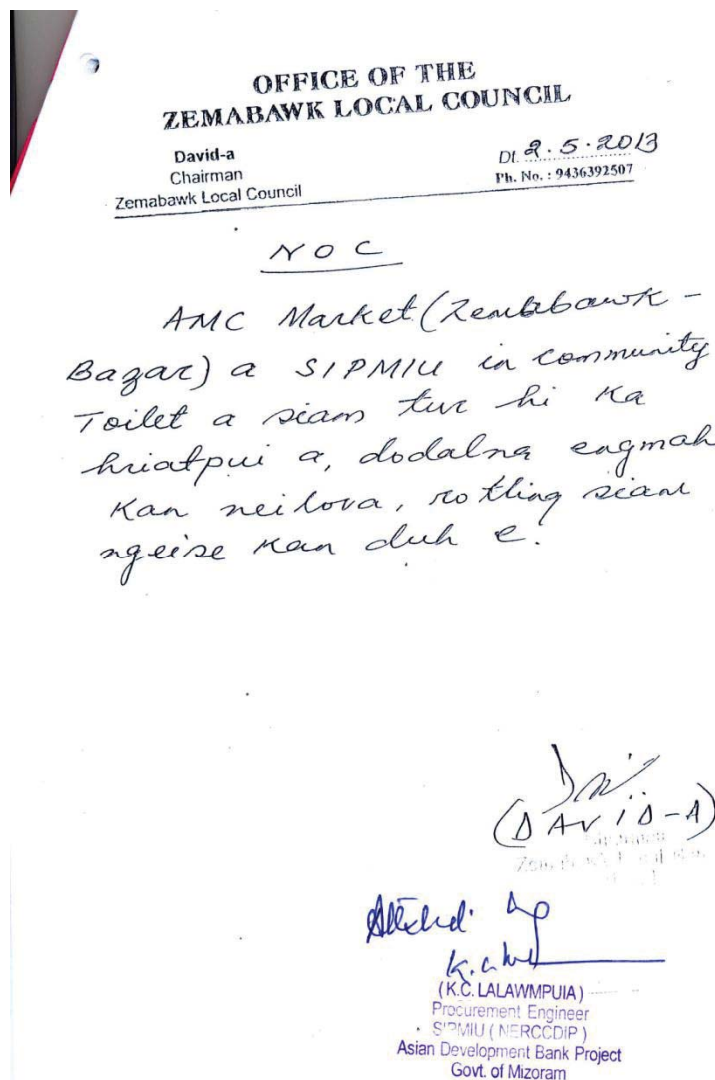 OFFICE OF THE
ZEMABAWK LOCAL COUNCIL
David-a
Chairman
Zemabawk Local Council
Dt. 2.5.2013
Ph. No. : 9436392507
NOC
AMC Market (Zembabawk -
Bazar) a SIPMIU in community
Toilet a siam tur hi Ka
hriatpui a, dodalna engmah
Kan neilova, rotling siam
ngeise Kan duh e.
(DAVID-A)
Attested
(K.C. LALAWMPUIA)
Procurement Engineer
SIPMIU ( NERCCDIP )
Asian Development Bank Project
Govt. of Mizoram